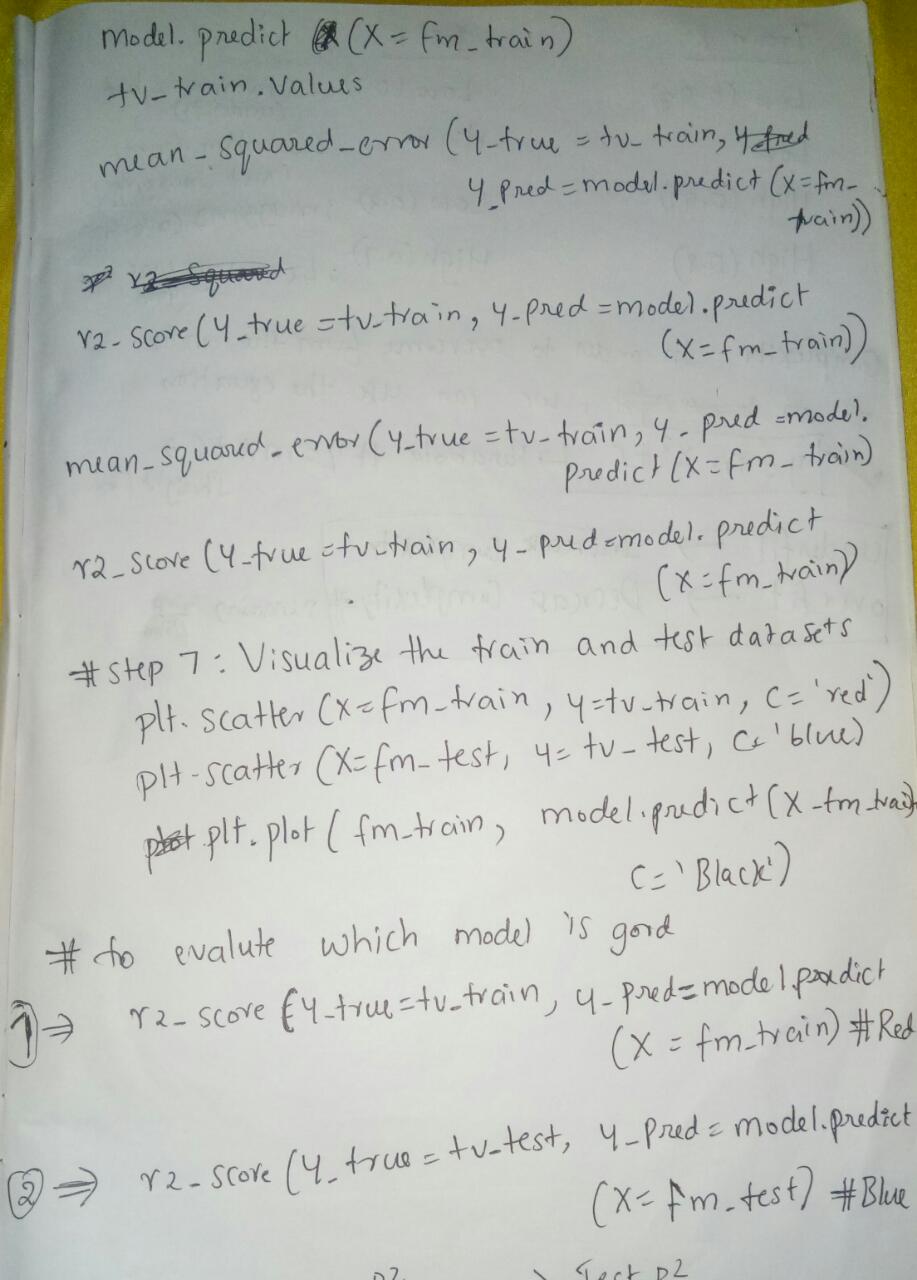 model. predict (X = fm_train)
tv_train. Values
mean_squared_error (y_true = tv_train,
y_pred = model.predict (X = fm_
train))
r2_score (y_true = tv_train, y_pred = model.predict
(X = fm_train))
mean_squared_error (y_true = tv_train, y_pred = model.
predict (X = fm_train)
r2_score (y_true = tv_train, y_pred = model. predict
(X = fm_train))
# step 7 : Visualize the train and test datasets
plt. scatter (X = fm_train, y = tv_train, c = 'red')
plt-scatter (X = fm_test, y = tv_test, c = 'blue)
plt. plot ( fm_train, model.predict (X - fm_train
C = 'Black')
# to evalute which model is good
1 ⇒ r2_score (y_true = tv_train, y_pred = model.predict
(X = fm_train) # Red
2 ⇒ r2_score (y_true = tv_test, y_pred = model.predict
(X = fm_test) # Blue